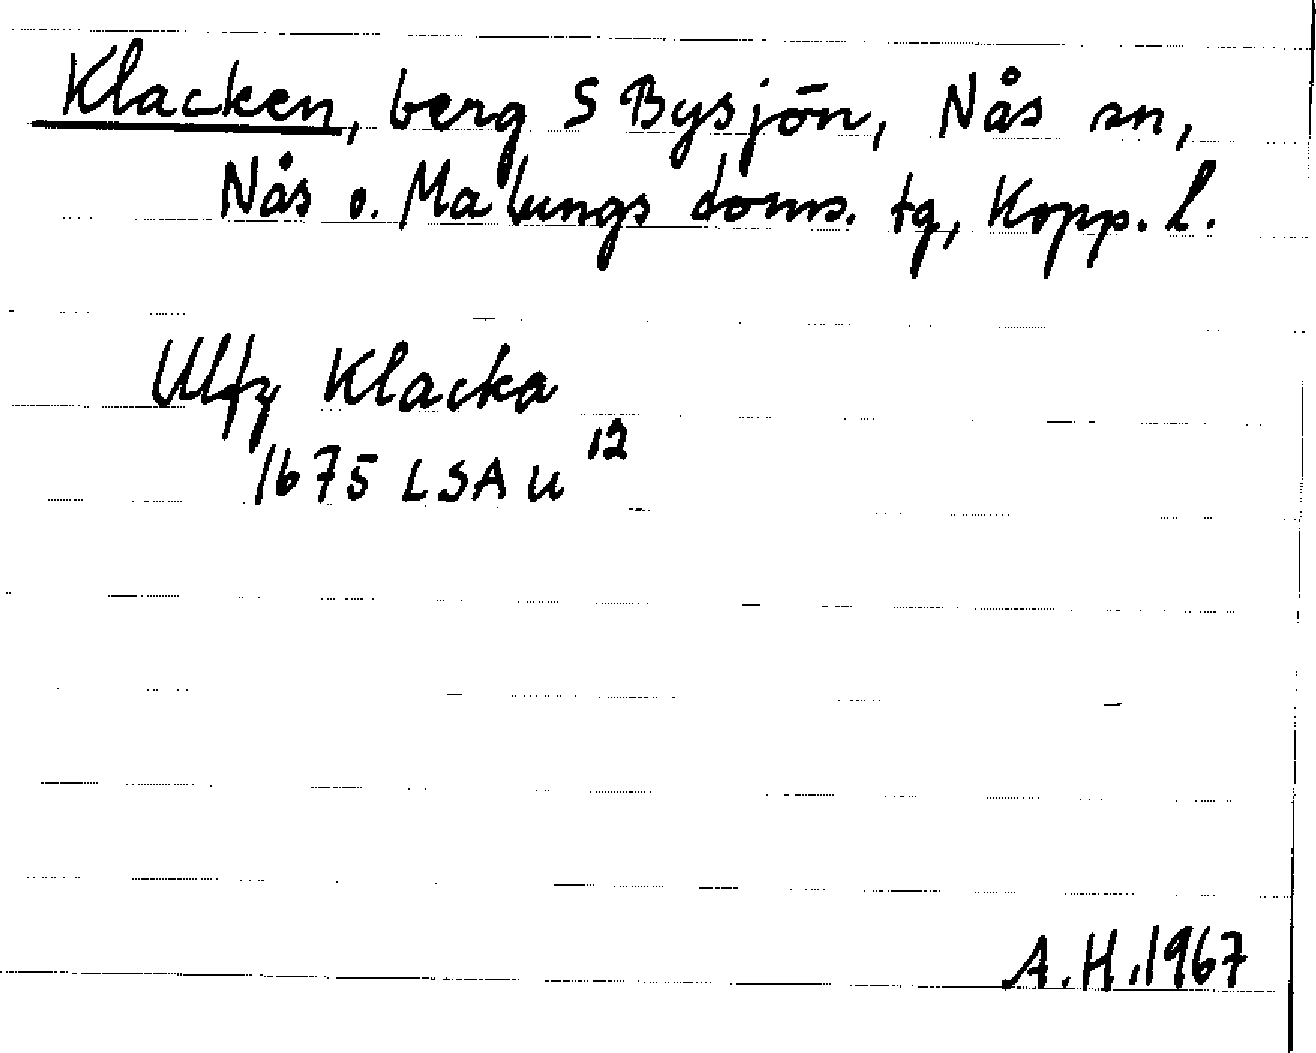 Klacken, berg S Bysjön, Nås sn,
Nås o. Malungs doms. tg, Kopp. l.
Ulfz Klacka
1675 LSA U 12
A.H. 1967